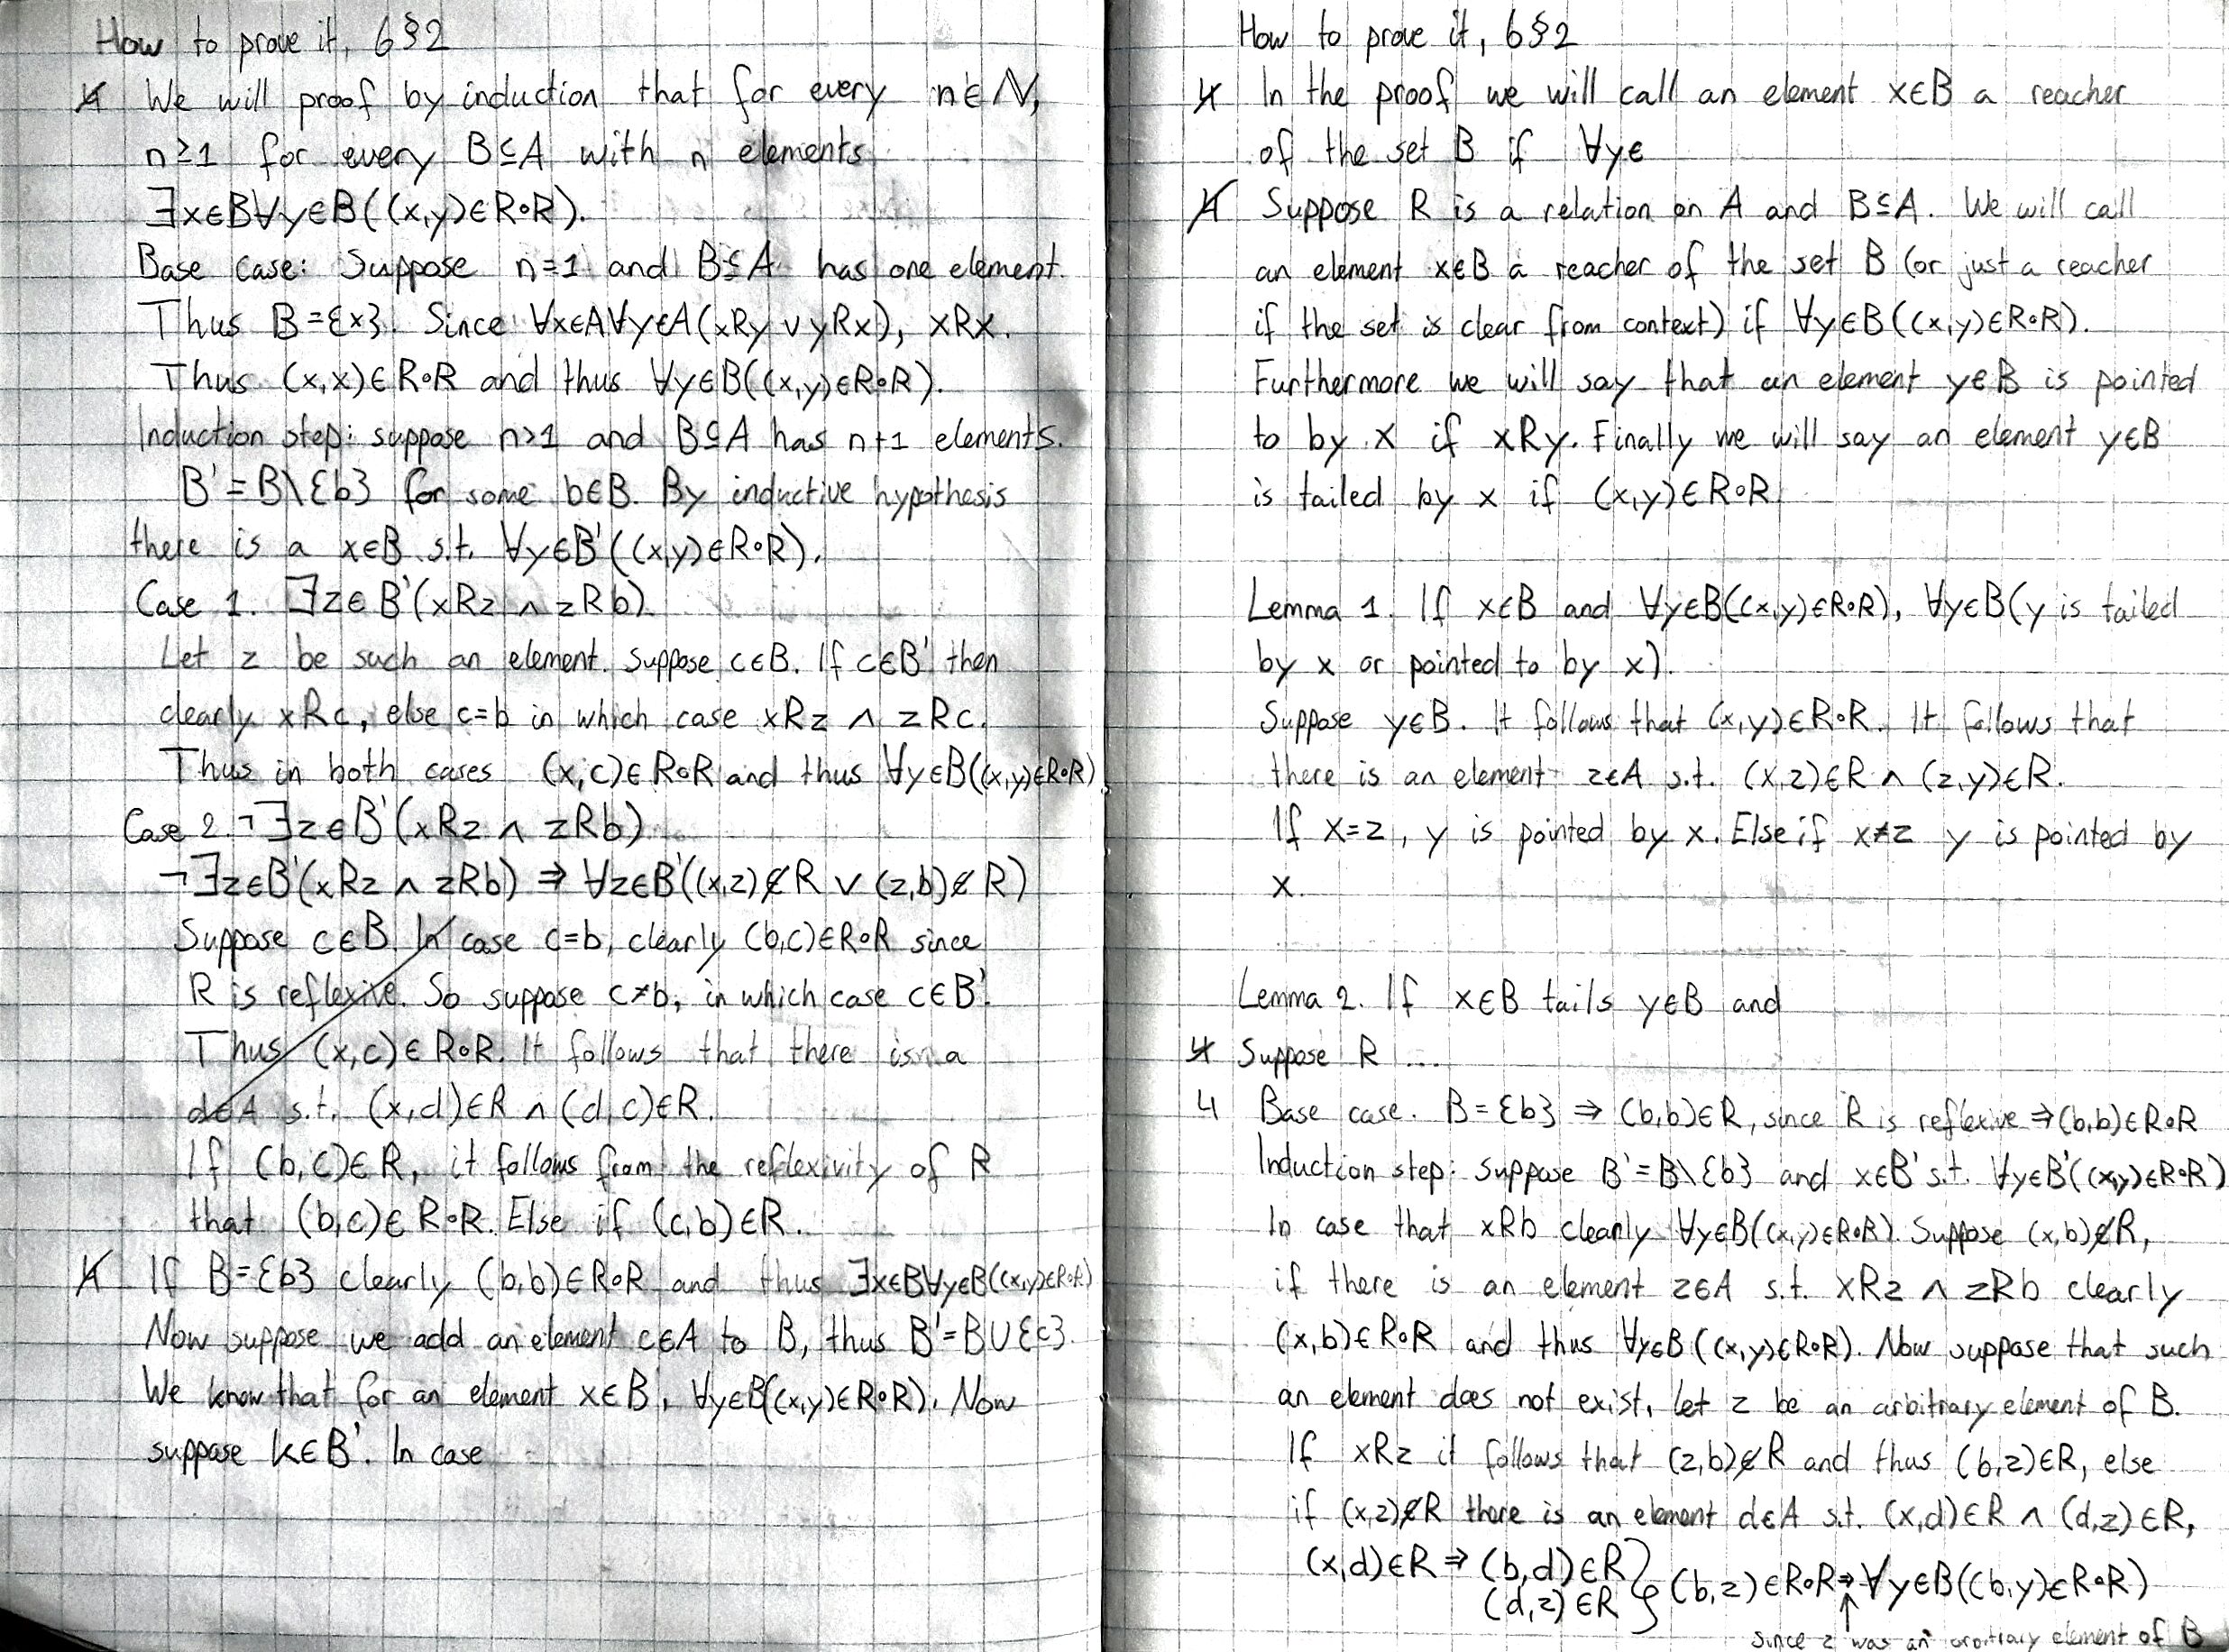 How to prove it, 6§2
4 We will proof by induction that for every n∈ℕ,
n≥1 for every B⊆A with n elements
∃x∈B∀y∈B((x,y)∈R∘R).
Base case: Suppose n=1 and B⊆A has one element.
Thus B={x}. Since ∀x∈A∀y∈A(xRy ∨ yRx), xRx.
Thus (x,x)∈R∘R and thus ∀y∈B((x,y)∈R∘R).
Induction step: suppose n>1 and B⊆A has n+1 elements.
B'=B\{b} for some b∈B. By inductive hypothesis
there is a x∈B s.t. ∀y∈B'((x,y)∈R∘R).
Case 1. ∃z∈B'(xRz ∧ zRb).
Let z be such an element. Suppose c∈B. If c∈B' then
clearly xRc, else c=b in which case xRz ∧ zRc.
Thus in both cases (x,c)∈R∘R and thus ∀y∈B((x,y)∈R∘R)
Case 2. ¬∃z∈B'(xRz ∧ zRb)
¬∃z∈B'(xRz ∧ zRb) ⇒ ∀z∈B'((x,z)∉R ∨ (z,b)∉R)
Suppose c∈B. In case c=b, clearly (b,c)∈R∘R since
R is reflexive. So suppose c≠b, in which case c∈B'.
Thus (x,c)∈R∘R. It follows that there is a
d∈A s.t. (x,d)∈R ∧ (d,c)∈R.
If (b,c)∈R, it follows from the reflexivity of R
that (b,c)∈R∘R. Else if (c,b)∈R.
4 If B={b} clearly (b,b)∈R∘R and thus ∃x∈B∀y∈B((x,y)∈R∘R)
Now suppose we add an element c∈A to B, thus B'=B∪{c}.
We know that for an element x∈B, ∀y∈B((x,y)∈R∘R). Now
suppose k∈B'. In case
How to prove it, 6§2
4 In the proof we will call an element x∈B a reacher
of the set B if ∀y∈
4 Suppose R is a relation on A and B⊆A. We will call
an element x∈B a reacher of the set B (or just a reacher
if the set is clear from context) if ∀y∈B((x,y)∈R∘R).
Furthermore we will say that an element y∈B is pointed
to by x if xRy. Finally we will say an element y∈B
is tailed by x if (x,y)∈R∘R
Lemma 1. If x∈B and ∀y∈B((x,y)∈R∘R), ∀y∈B(y is tailed
by x or pointed to by x).
Suppose y∈B. It follows that (x,y)∈R∘R. It follows that
there is an element z∈A s.t. (x,z)∈R ∧ (z,y)∈R.
If x=z, y is pointed by x. Else if x≠z y is pointed by
x.
Lemma 2. If x∈B tails y∈B and
4 Suppose R ....
4 Base case. B={b} ⇒ (b,b)∈R, since R is reflexive ⇒ (b,b)∈R∘R
Induction step: suppose B'=B\{b} and x∈B' s.t. ∀y∈B'((x,y)∈R∘R)
In case that xRb clearly ∀y∈B((x,y)∈R∘R). Suppose (x,b)∉R,
if there is an element z∈A s.t. xRz ∧ zRb clearly
(x,b)∈R∘R and thus ∀y∈B((x,y)∈R∘R). Now suppose that such
an element does not exist, let z be an arbitrary element of B.
If xRz it follows that (z,b)∉R and thus (b,z)∈R, else
if (x,z)∉R there is an element d∈A s.t. (x,d)∈R ∧ (d,z)∈R,
(x,d)∈R ⇒ (b,d)∈R
(d,z)∈R } (b,z)∈R∘R ⇒ ∀y∈B((b,y)∈R∘R)
↑
since z was an arbitrary element of B